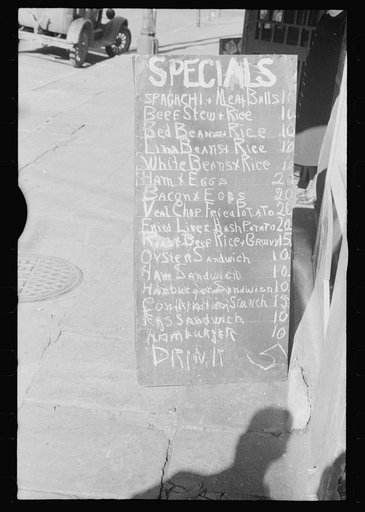 SPECIALS
SPAGACHI + Meat Balls 1
Beef Stew + Rice 10
Bed Beans + Rice 10
Lima Beans + Rice 10
White Beans + Rice 10
Ham + Eggs 20
Bacon + Eggs 20
Veal Chop Fried Potato 20
Fried Liver Hash Potato 20
Roast Beef Rice + Gravy 15
Oyster Sandwich 10
Ham Sandwich 10
Hamburger Sandwich 10
15
Egg Sandwich 10
HAMBURGER 10
DRINK 5